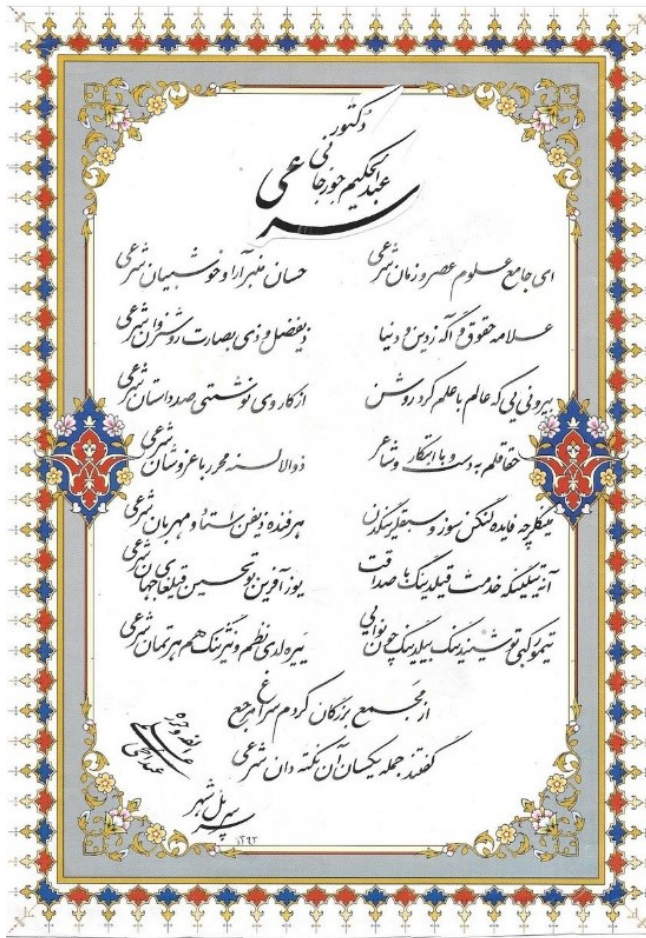 دکتور
عبدالحکیم جوزجانی
شرعی
ای جامع علوم عصر و زمان شرعی حسان منبر آرا و خوش بیان شرعی
علامه حقوق و آگه ز دین و دنیا ذیفضل و ذی بصارت روشنروان شرعی
بیرونی یی که عالم با علم کرد روشن از کار وی نوشتی صد داستان شرعی
حقا قلم به دست و با ابتکار و شاعر ذوالالسنه محرر با عز و شان شرعی
مینگلرچه فایده لنگن سوز و سبقلرینگدن هر فنده ذیفن استاد و مهربان شرعی
آنه تیلینگه خدمت قیلدینگ با صداقت یوز آفرین تو تحسین قیلغای جهان شرعی
تیمور کبی توشیندینگ بیلدینگ چون نوایی بیره لدی نظم و نثرینگ هم هر تمان شرعی
از مجمع بزرگان کردم سراغ مرجع
گفتند جمله یکسان آن نکته دان شرعی
سرپل شهر
۱۳۹۲